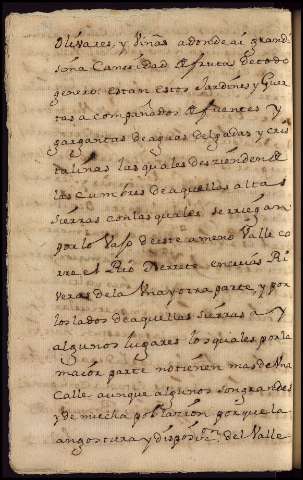 Olivares, y Viñas adonde ai grandi
sima Cantidad de fruta de todo
genero: estan estos Jardines, y Guer
tas acompañados de fuentes y
gargantas de aguas delgadas y cris
talinas las quales deszienden de
las Cumbres de aquellas altas
sierras con las quales se riegan
por lo Vajo de este ameno Valle co
rre el Rio en cuias Ri
veras de la Una y otra parte, y por
los lados de aquellas sierras ay
algunos lugares los quales por la
maior parte no tienen mas de Una
Calle aunque algunos son grandes
y de mucha poblazion porque la
angostura y disposion del Valle